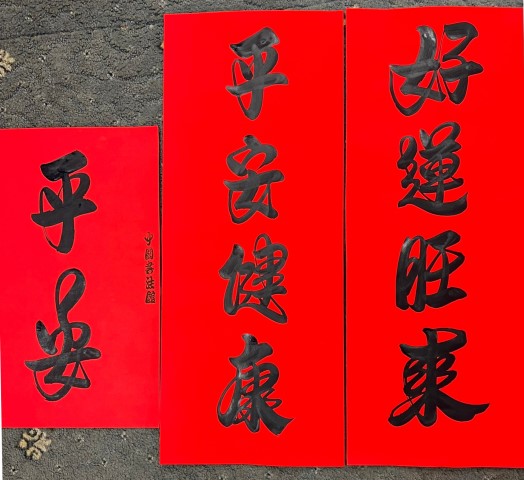 好運旺來
平安健康
平安